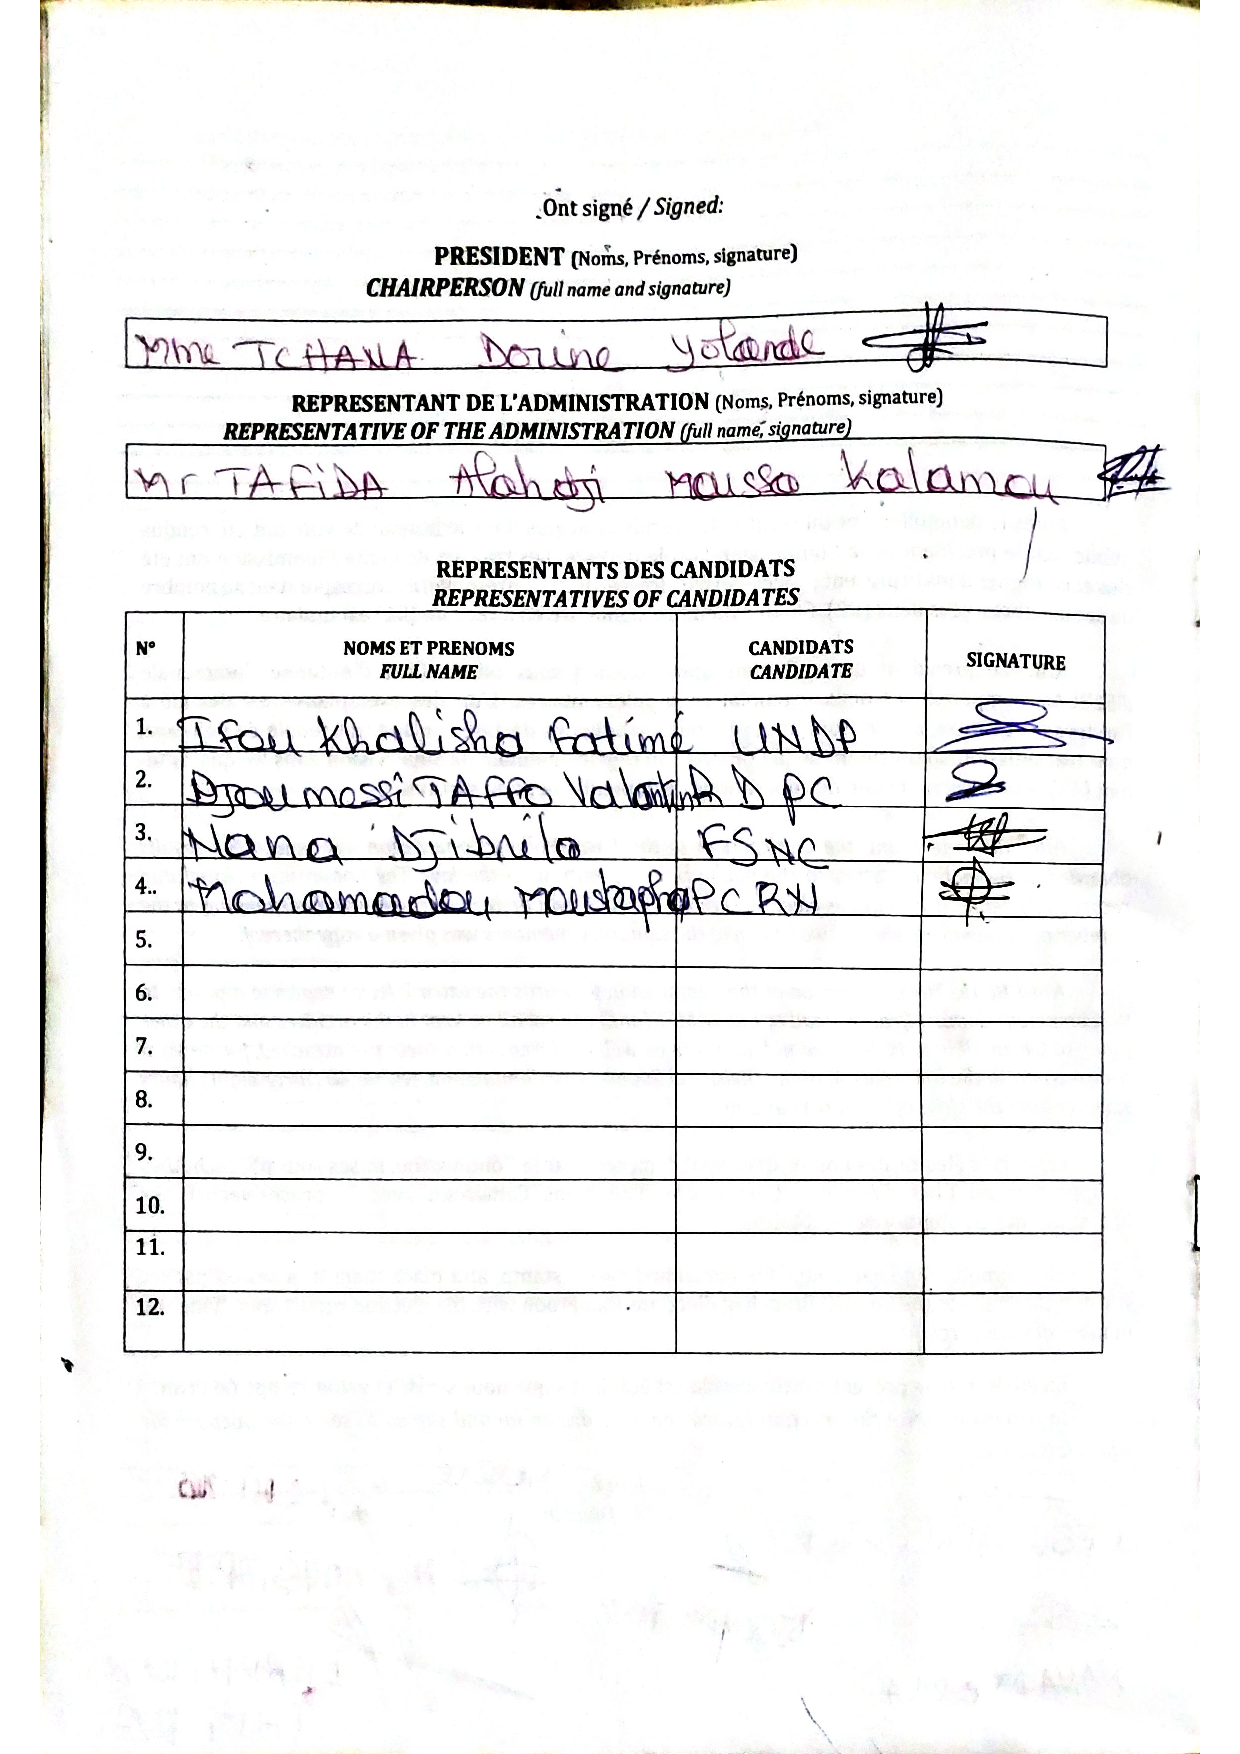 Ont signé / Signed:
PRESIDENT (Noms, Prénoms, signature)
CHAIRPERSON (full name and signature)
Mme TCHANA Dorine Yolande
REPRESENTANT DE L'ADMINISTRATION (Noms, Prénoms, signature)
REPRESENTATIVE OF THE ADMINISTRATION (full name, signature)
Mr TAFIDA Alahdji Moussa Kalamou
REPRESENTANTS DES CANDIDATS
REPRESENTATIVES OF CANDIDATES
N° NOMS ET PRENOMS CANDIDATS SIGNATURE
FULL NAME CANDIDATE
1. Ifou Khalisha Fatimé UNDP
2. Djoumessi TAFFO Valantin RDPC
3. Nana Djibrila FSNC
4.. Mohamadou Moustapha PCRN
5.
6.
7.
8.
9.
10.
11.
12.